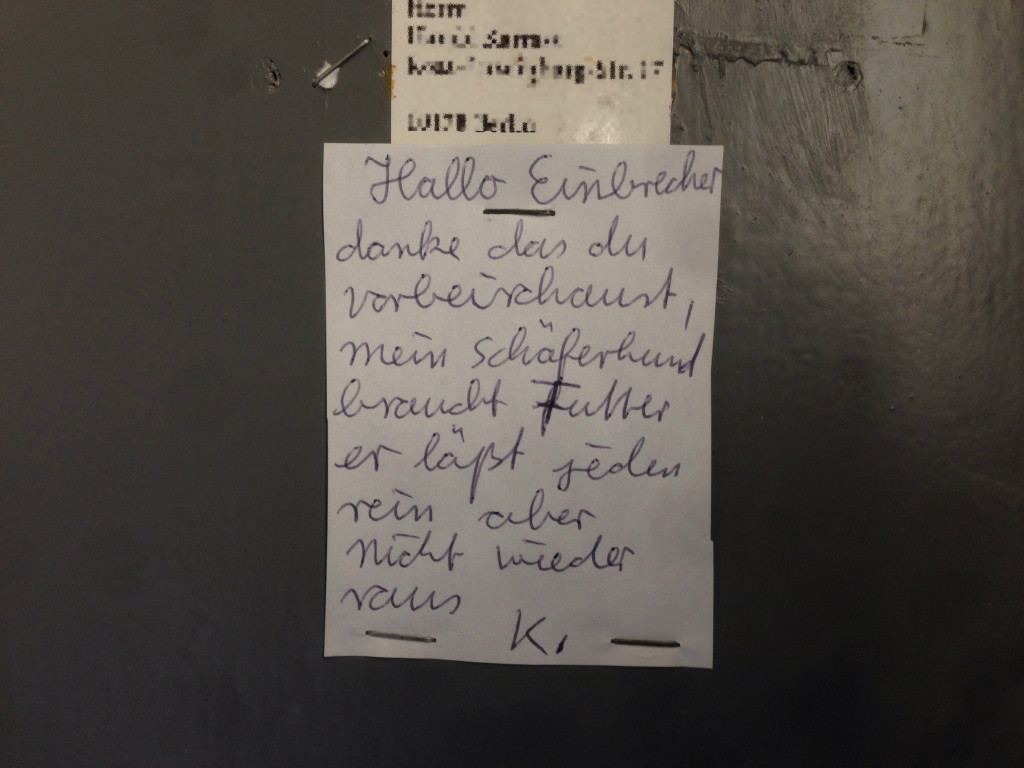 Herr
10178 Berlin
Hallo Einbrecher
danke das du
vorbeischaust,
mein Schäferhund
braucht Futter
er läßt jeden
rein aber
nicht wieder
raus
K.